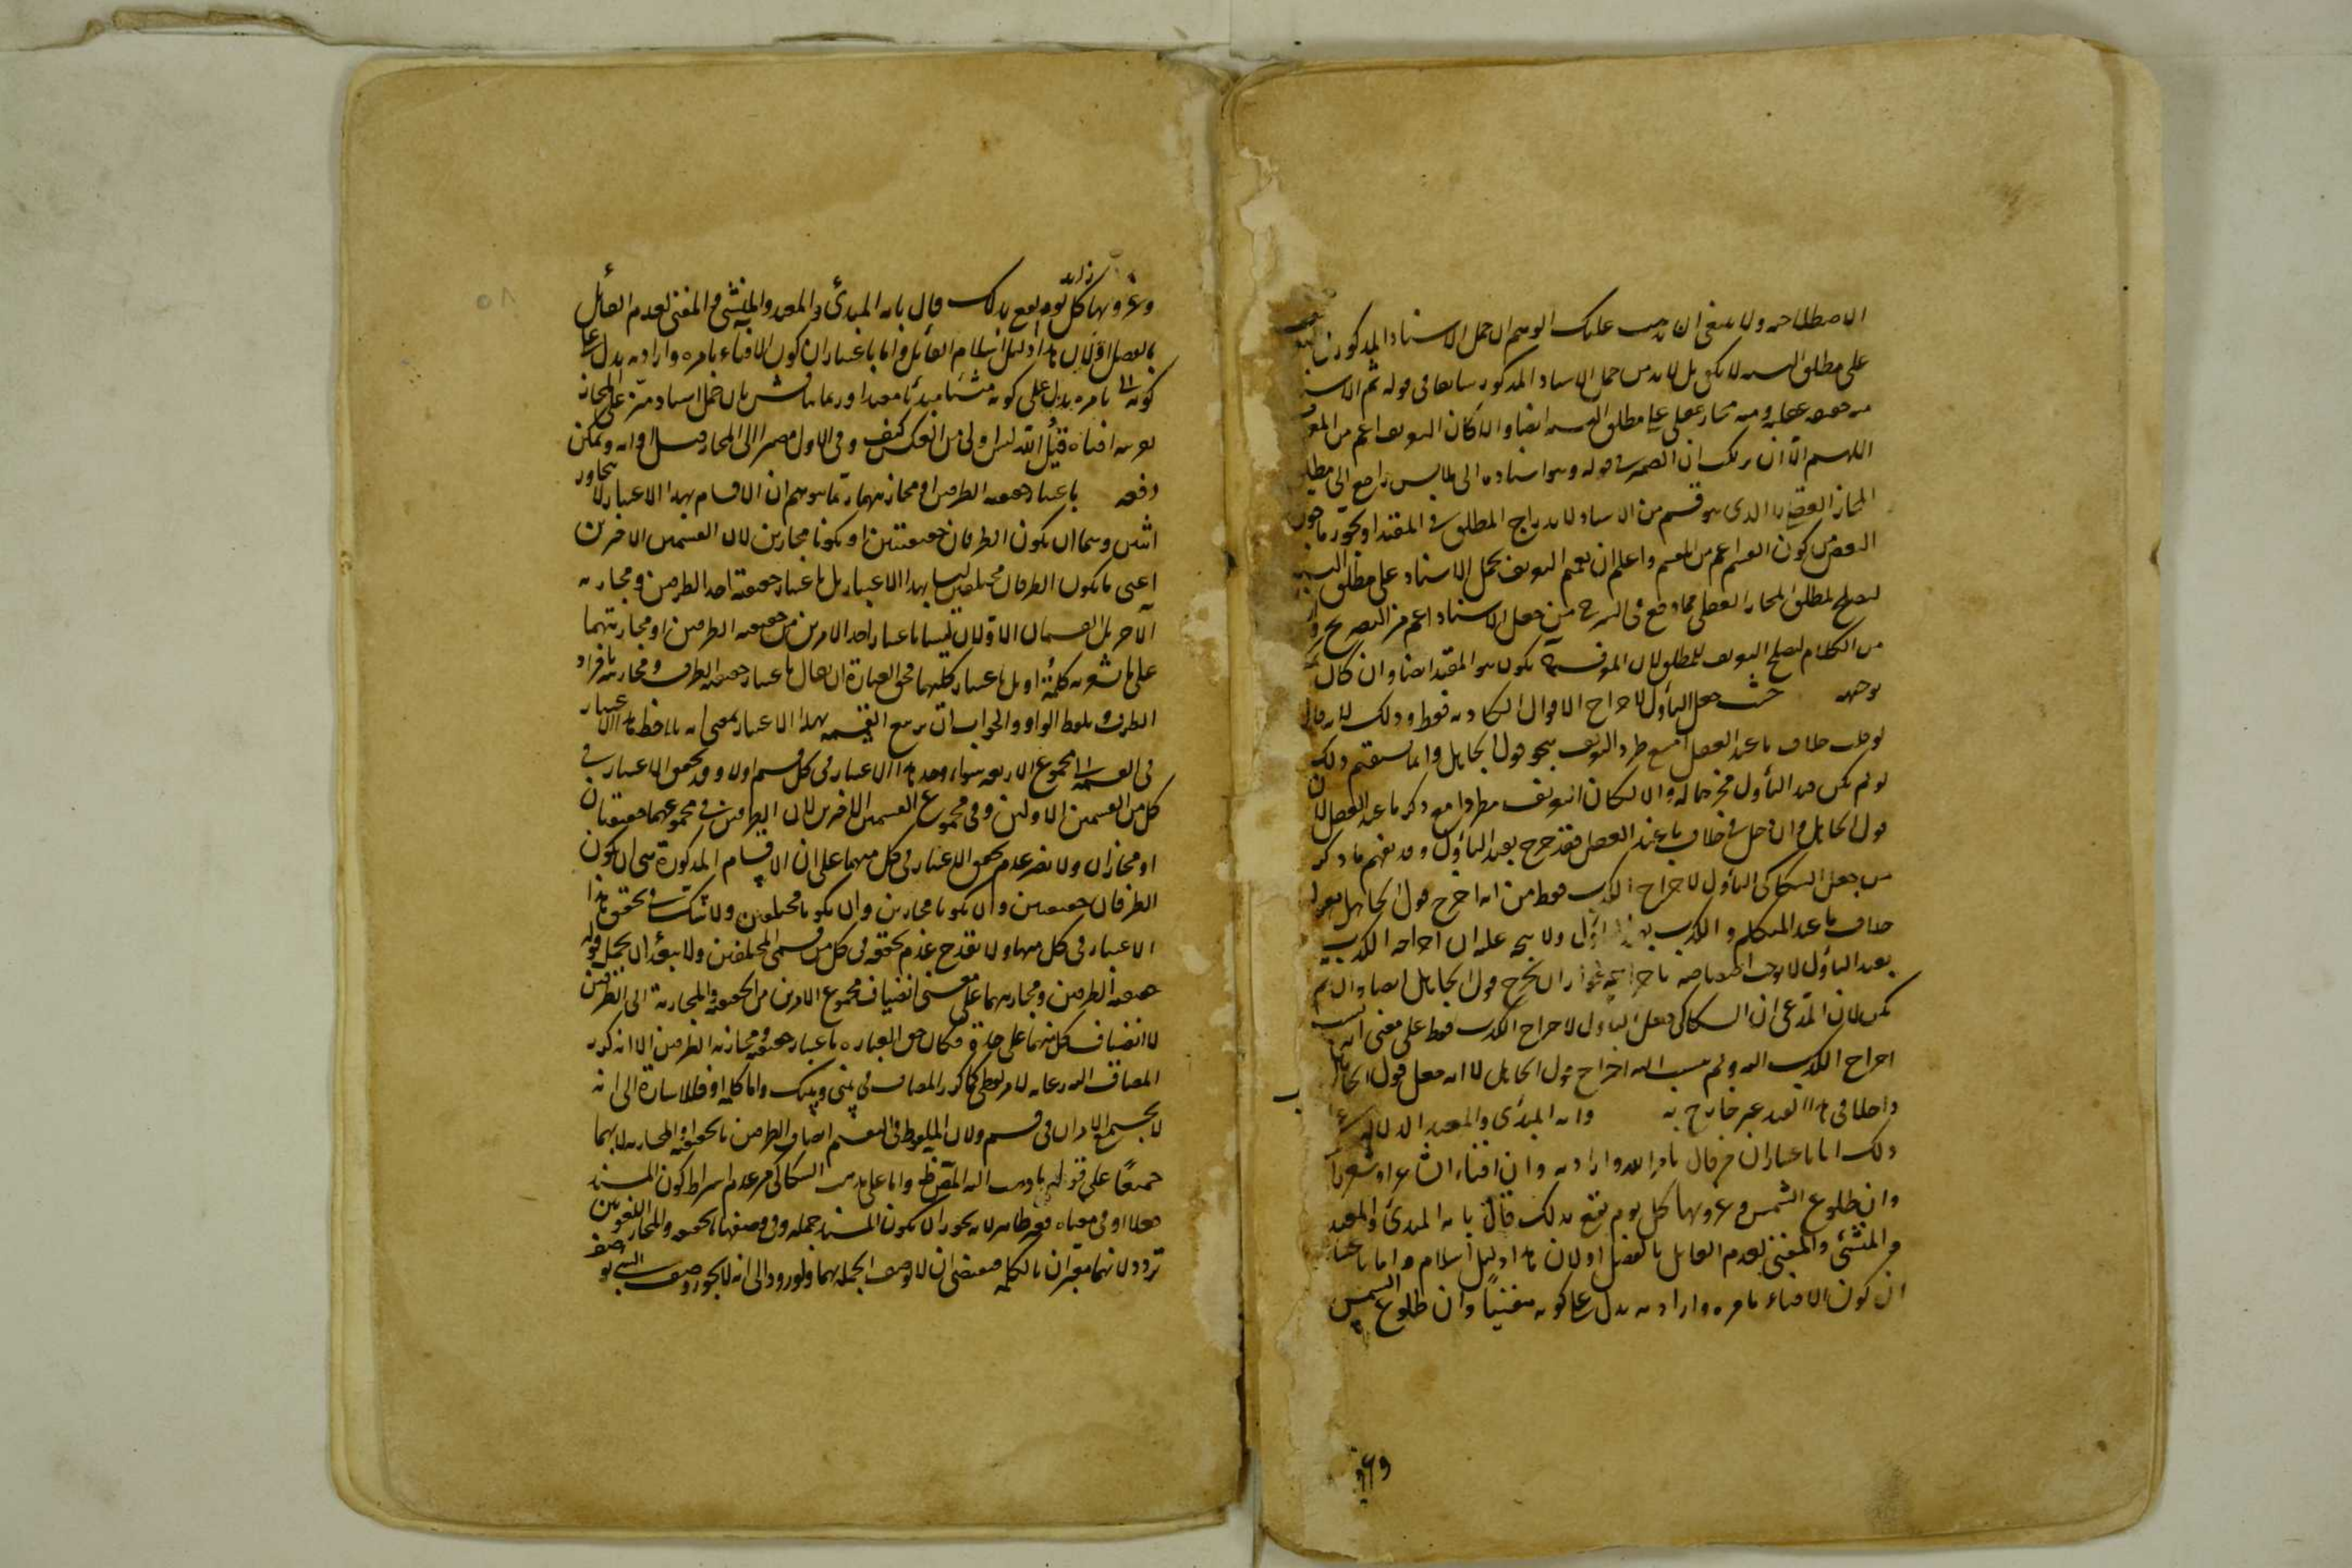 الاصطلاحه ولا ينبغى ان يذهب عليك الوهم ان حمل الاسناد المذكور
على مطلق النسبه لا يكفى بل لا بد من حمل الاسناد المذكور سابقا فى قوله ثم الاسناد
منه حقيقه عقليه ومنه مجاز عقلى على مطلق النسبه ايضا والا لكان التعريف اعم من المعرف
اللهم الا ان يرتكب ان الضمير فى قوله وهو اسناده الى ملابس راجع الى مطلق
المجاز العقلى لا الذى هو قسم من الاسناد لاندراج المطلق فى المقيد او تجوز ما جوز
البعض من كون القسم اعم من المقسم واعلم ان تعميم التعريف بحمل الاسناد على مطلق النسبه
ليصلح لمطلق المجاز العقلى مما وقع فى الشرح من جعل الاسناد اعم من الصريح
من الكلام لصلح التعريف للمطلق لان المعرف يكون هو المقيد ايضا وان كان
توجهه حيث جعل التأول لاخراج الاقوال الكاذبه فقط وذلك لانه قال
لو قلت خلاف ما عند العقل امتنع طرد التعريف بنحو قول الجاهل وانما يستقيم ذلك
لو لم يكن قيد التأول مخرجا له والا لكان التعريف مطردا مع ذكر ما عند العقل لان
قول الجاهل وان دخل فى خلاف ما عند العقل فقد خرج بقيد التأول وقد يفهم ما ذكر
من جعل السكاكى التأول لاخراج الكذب فقط من انه اخرج قول الجاهل بقوله
خلاف ما عند المتكلم والكذب بقيد التأول ولا يتجه عليه ان اخراجه الكذب
بقيد التأول لا يوجب اختصاصه باخراجه لجواز ان يخرج قول الجاهل ايضا وان لم
يكن لان المدعى ان السكاكى جعل التأول لاخراج الكذب فقط على معنى انه نسب
اخراج الكذب اليه ولم ينسب اليه اخراج قول الجاهل لا انه جعل قول الجاهل
داخلا فى هذا القيد غير خارج به وانه المبدئ والمعيد الدلاله
ذلك اما باعتبار ان من قال بامر الله وارادته وان افناء الشاعر او شعره
وان طلوع الشمس وغروبها كل يوم يقع بذلك قال بانه المبدئ والمعيد
والمنشئ والمفنى لعدم القائل بالفصل او لان هذا دليل اسلامه واما باعتبار
ان كون الافناء بامره وارادته يدل على كونه مفنيا وان طلوع الشمس
وغروبها
وغروبها كل يوم يقع بذلك قال بانه المبدئ والمعيد والمنشئ والمفنى لعدم القائل
بالفصل او لان هذا دليل اسلام القائل واما باعتبار ان كون الافناء بامره وارادته يدل على
كونه بامره يدل على كونه منشئا مبدئا معيدا وربما يناقش بان حمل اسناد ميز على المجاز
بقرينه افناه قيل الله ليس اولى من العكس كيف وفى الاول مصير الى المجاز قبل اوانه ويمكن
دفعه باعتبار حقيقه الطرفين او مجازيتهما ربما يتوهم ان الاقسام بهذا الاعتبار لا يتجاوز
اثنين وهما ان يكون الطرفان حقيقتين او يكونا مجازين لان القسمين الاخرين
اعنى ما يكون الطرفان مختلفين ليسا بهذا الاعتبار بل باعتبار حقيقه احد الطرفين ومجازيه
الآخر بل القسمان الاولان ليسا باعتبار احد الامرين من حقيقه الطرفين او مجازيتهما
على ما يشعر به كلمة او بل باعتبار كليهما فحق العبارة ان يقال باعتبار حقيقه الطرف ومجازيته بافراد
الطرف وبلفظ الواو والجواب ان تربيع القسمه بهذا الاعتبار بمعنى انه يلاحظ هذا الاعتبار
فى القسمه الى مجموع الاربعه سواء وجد هذا الاعتبار فى كل قسم او لا وقد تحقق الاعتبار فى
كل من القسمين الاولين وفى مجموع القسمين الاخرين لان الطرفين فى مجموعهما حقيقتان
او مجازان ولا يضر عدم تحقق الاعتبار فى كل منهما على ان الاقسام المذكورة هى ان يكون
الطرفان حقيقتين وان يكونا مجازين وان يكونا مختلفين ولا شك فى تحقق هذا
الاعتبار فى كل منها ولا يقدح عدم تحققه فى كل من قسمى المختلفين ولا يبعد ان يحمل قوله
حقيقه الطرفين ومجازيتهما على معنى انضياف مجموع الامرين من الحقيقه والمجازية الى الطرفين
لا انضياف كل منهما على حدة فكان حق العباره باعتبار حقيقه ومجازيه الطرفين الا انه كرر
المضاف اليه رعايه لامر لفظى كما كرر المضاف فى بينى وبينك واما كلمه او فللاشارة الى انه
لا يجتمع الامران فى قسم ولان الملحوظ فى التقسيم اتصاف الطرفين بالحقيقه او المجازيه لا بهما
جميعا على قول ما ذهب اليه المص ظ واما على مذهب السكاكى من عدم اشتراط كون المسند
فعلا او فى معناه فغير ظاهر لانه يجوز ان يكون المسند جمله وفى وصفها بالحقيقه والمجاز اللغويين
تردد لانهما مفسران بالكلمه فيقتضى ان لا توصف الجمله بهما ولوروده الى انه لا يجوز وصف الشئ بوصف